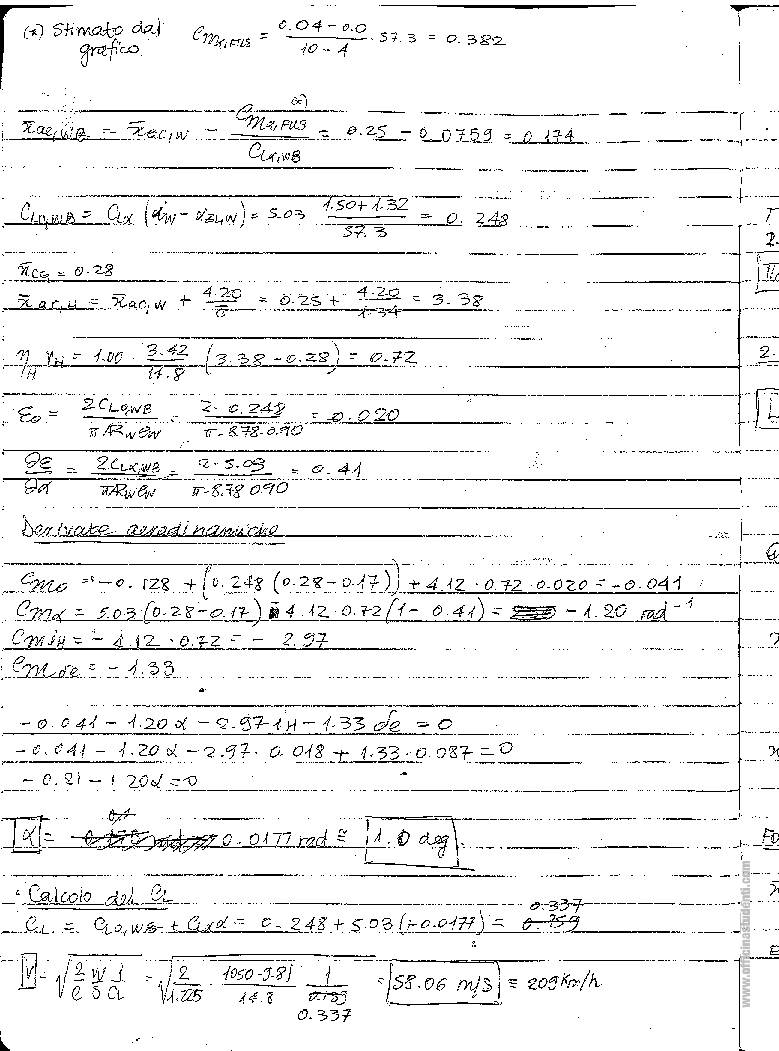 (*) Stimato dal grafico C_mα,FUS = (0.04 - 0.0)/(10 - 4) · 57.3 = 0.382
x̄ac,WB = x̄ac,W - C_mα,FUS (*)/C_Lα,WB = 0.25 - 0.0759 = 0.174
C_L0,WB = C_Lα (α_W - α_ZL,W) = 5.03 (1.50 + 1.32)/57.3 = 0.248
x̄CG = 0.28
x̄ac,H = x̄ac,W + 4.20/c̄ = 0.25 + 4.20/1.34 = 3.38
η_H V_H = 1.00 · 3.42/14.8 (3.38 - 0.28) = 0.72
ε0 = 2C_L0,WB/πAR_W e_W = 2 · 0.248/π · 8.78 · 0.90 = 0.020
∂ε/∂α = 2C_Lα,WB/πAR_W e_W = 2 · 5.03/π · 8.78 0.90 = 0.41
Derivate aerodinamiche
C_m0 = -0.128 + (0.248 (0.28 - 0.17)) + 4.12 · 0.72 · 0.020 = -0.041
C_mα = 5.03 (0.28 - 0.17) - 4.12 · 0.72 (1 - 0.41) = -1.20 rad⁻¹
C_m iH = -4.12 · 0.72 = -2.97
C_m δe = -1.33
-0.041 - 1.20α - 2.97 iH - 1.33 δe = 0
-0.041 - 1.20α - 2.97 · 0.018 + 1.33 · 0.087 = 0
-0.21 - 1.20α = 0
α = 0.0177 rad ≅ 1.0 deg
Calcolo del CL
CL = C_L0,WB + C_Lα α = 0.248 + 5.03 (+0.0177) = 0.337
V = √(2/ρ W/S 1/CL) = √(2/1.225 · 1050 · 9.81/14.8 1/0.337) = 58.06 m/s ≡ 209 Km/h
www.officinastudenti.com